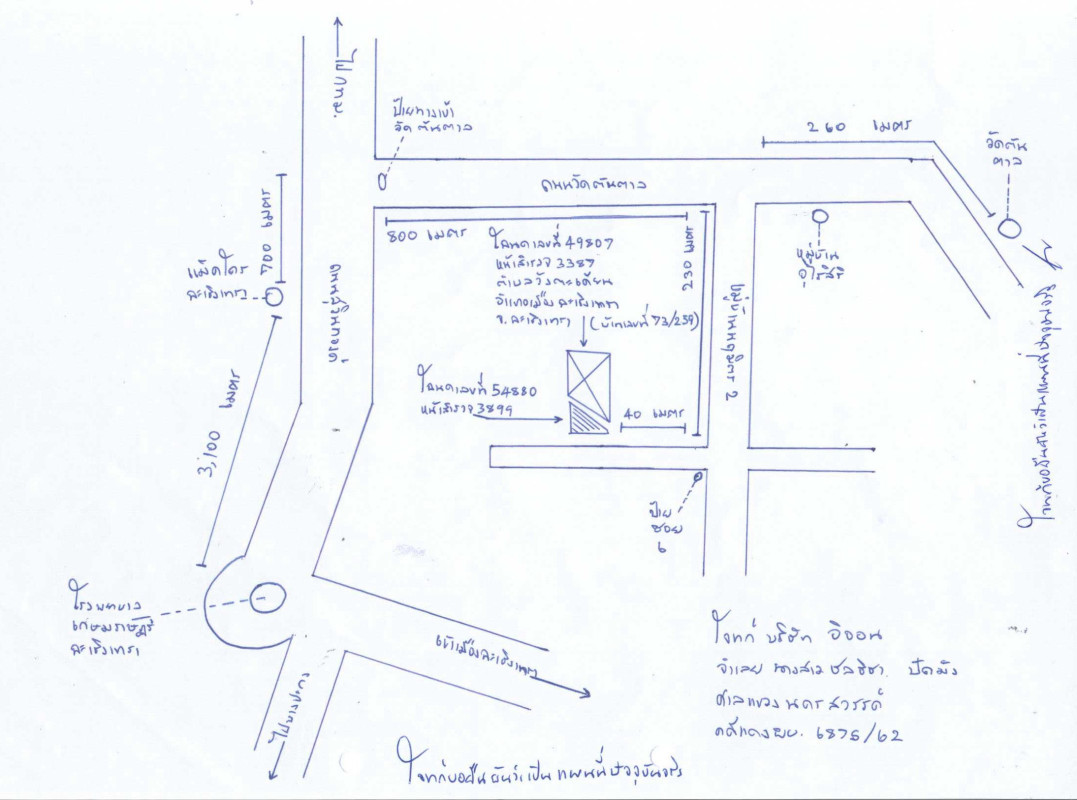 ไป กทม.
ป้ายทางเข้า
วัดต้นตาล
260 เมตร
วัดต้น
ตาล
ถนนวัดต้นตาล
700 เมตร
800 เมตร
โฉนดเลขที่ 49807
หน้าสำรวจ 3387
ตำบลวังตะเคียน
อำเภอเมืองฉะเชิงเทรา
จ.ฉะเชิงเทรา (บ้านเลขที่ 73/259)
230 เมตร
หมู่บ้าน
แม็คโคร
ฉะเชิงเทรา
ถนนสุวินทวงศ์
2
โฉนดเลขที่ 54880
หน้าสำรวจ 3899
40 เมตร
3,100 เมตร
ป้าย
ซอย
6
โรงพยาบาล
เกษมราษฎร์
ฉะเชิงเทรา
เข้าเมืองฉะเชิงเทรา
ไปบางปะกง
โจทก์ บริษัท อิออน
จำเลย นางสาว ชลธิชา
ศาลแขวงนครสวรรค์
คดีแดงที่ ผบ. 6875/62
โจทก์ขอยืนยันว่าเป็นแผนที่ปัจจุบันจริง
โจทก์ขอยืนยันว่าเป็นแผนที่ปัจจุบันจริง